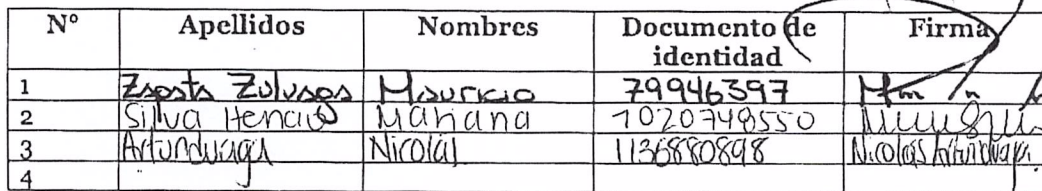 N° Apellidos Nombres Documento de identidad Firma
1 Zapata Zuluaga Mauricio 79946397
2 Silva Henao Mariana 1020748550
3 Artunduaga Nicolás 1136880898 Nicolás Artunduaga
4